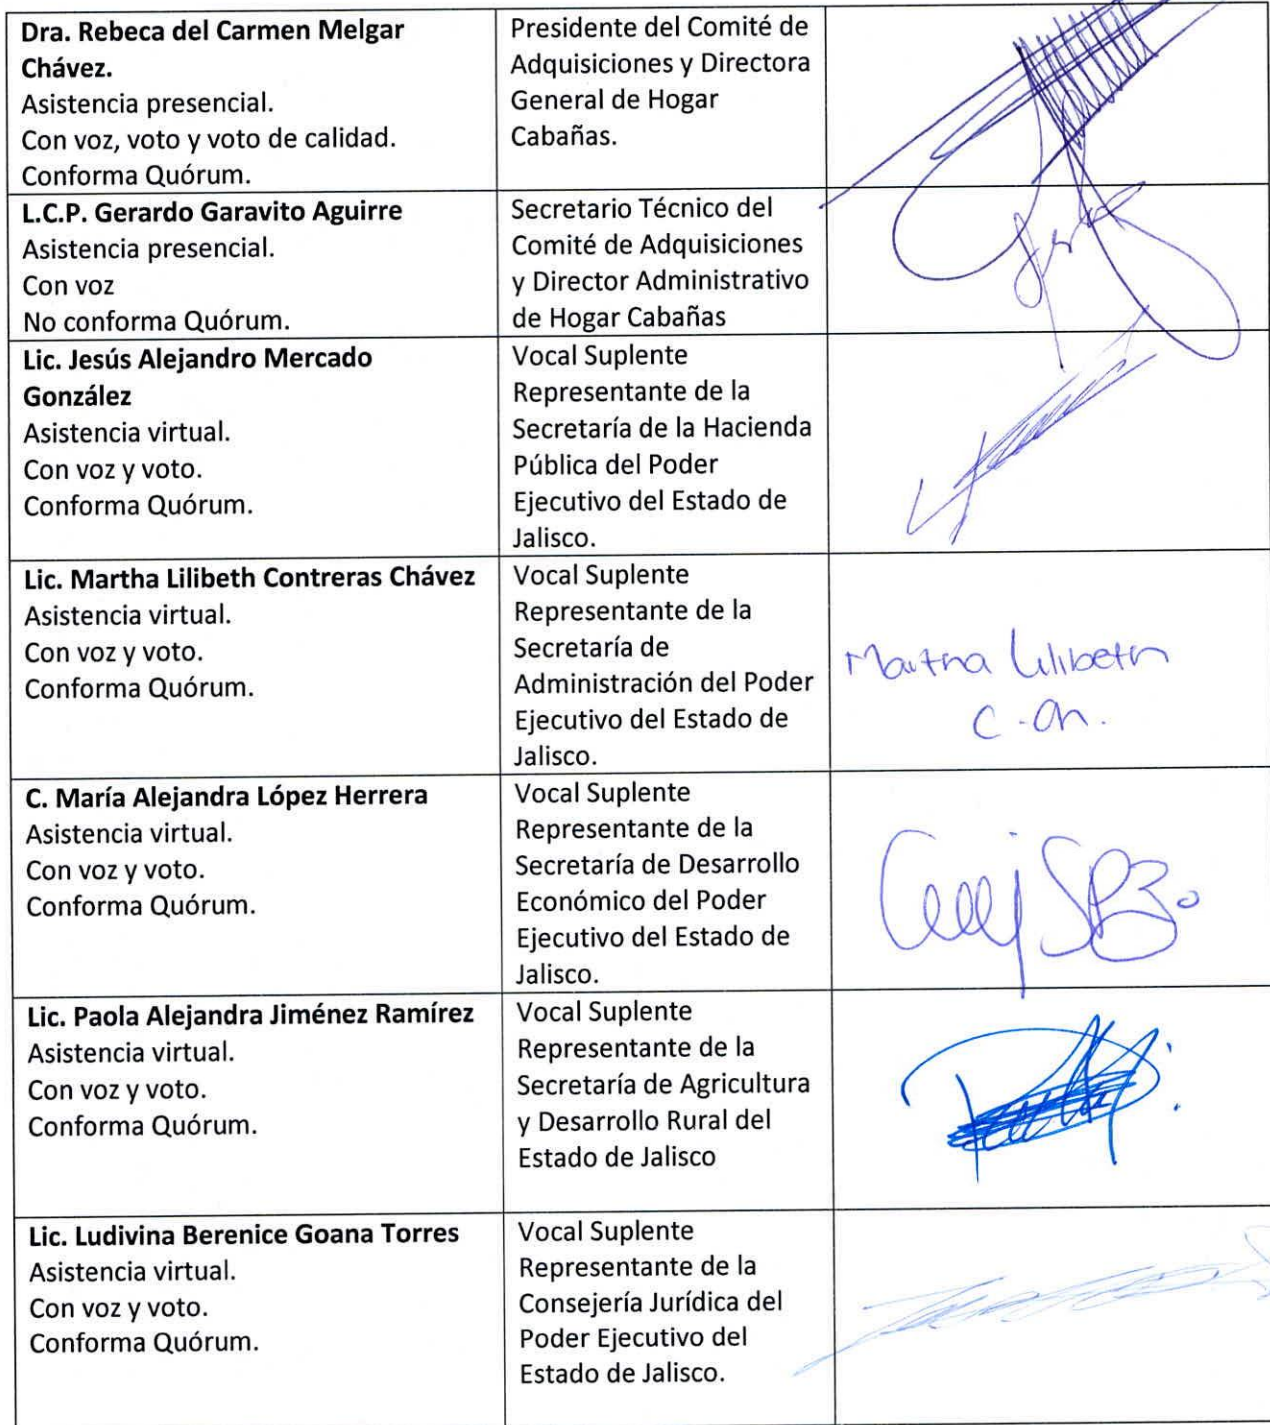 Dra. Rebeca del Carmen Melgar
Chávez.
Asistencia presencial.
Con voz, voto y voto de calidad.
Conforma Quórum.
Presidente del Comité de
Adquisiciones y Directora
General de Hogar
Cabañas.
L.C.P. Gerardo Garavito Aguirre
Asistencia presencial.
Con voz
No conforma Quórum.
Secretario Técnico del
Comité de Adquisiciones
y Director Administrativo
de Hogar Cabañas
Lic. Jesús Alejandro Mercado
González
Asistencia virtual.
Con voz y voto.
Conforma Quórum.
Vocal Suplente
Representante de la
Secretaría de la Hacienda
Pública del Poder
Ejecutivo del Estado de
Jalisco.
Lic. Martha Lilibeth Contreras Chávez
Asistencia virtual.
Con voz y voto.
Conforma Quórum.
Vocal Suplente
Representante de la
Secretaría de
Administración del Poder
Ejecutivo del Estado de
Jalisco.
Martha Lilibeth
C. Ch.
C. María Alejandra López Herrera
Asistencia virtual.
Con voz y voto.
Conforma Quórum.
Vocal Suplente
Representante de la
Secretaría de Desarrollo
Económico del Poder
Ejecutivo del Estado de
Jalisco.
Lic. Paola Alejandra Jiménez Ramírez
Asistencia virtual.
Con voz y voto.
Conforma Quórum.
Vocal Suplente
Representante de la
Secretaría de Agricultura
y Desarrollo Rural del
Estado de Jalisco
Lic. Ludivina Berenice Goana Torres
Asistencia virtual.
Con voz y voto.
Conforma Quórum.
Vocal Suplente
Representante de la
Consejería Jurídica del
Poder Ejecutivo del
Estado de Jalisco.